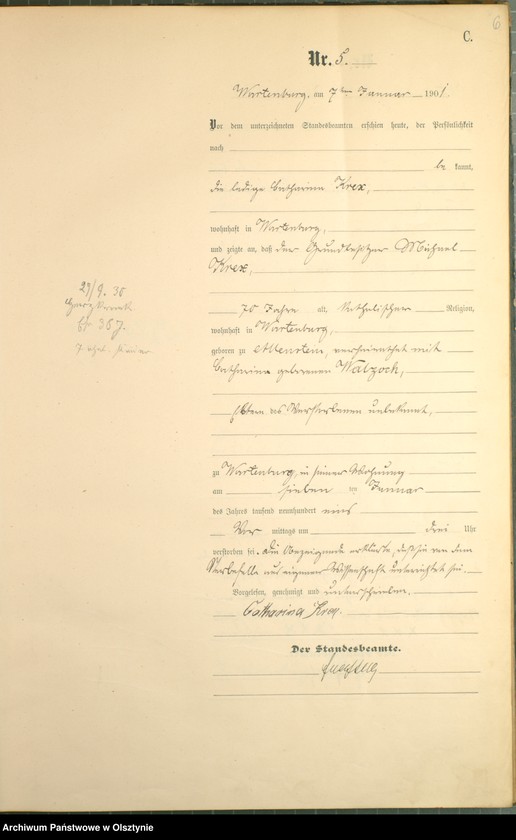 6
C.
Nr. 5.
Wartenburg, am 7ten Januar 1901.
Vor dem unterzeichneten Standesbeamten erschien heute, der Persönlichkeit
nach
be kannt,
die ledige Catharina Krex,
wohnhaft in Wartenburg,
und zeigte an, daß der Grundbesitzer Michael
Krex,
70 Jahre alt, katholischer Religion,
wohnhaft in Wartenburg,
geboren zu Allenstein, verheirathet mit
Catharina geborenen
Eltern des Verstorbenen unbekannt,
zu Wartenburg, in seiner Wohnung
am sieben ten Januar
des Jahres tausend neunhundert eins
Vor mittags um drei Uhr
verstorben sei. Die Anzeigende erklärte, daß sie von dem
Sterbefalle aus eigener Wissenschaft unterrichtet sei.
Vorgelesen, genehmigt und unterschrieben.
Catharina Krex.
Der Standesbeamte.
29/9. 38
Archiwum Państwowe w Olsztynie